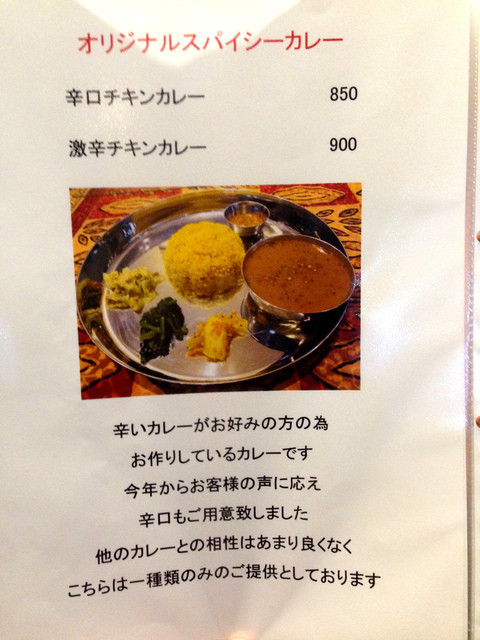 オリジナルスパイシーカレー
辛口チキンカレー 850
激辛チキンカレー 900
辛いカレーがお好みの方の為
お作りしているカレーです
今年からお客様の声に応え
辛口もご用意致しました
他のカレーとの相性はあまり良くなく
こちらは一種類のみのご提供としております